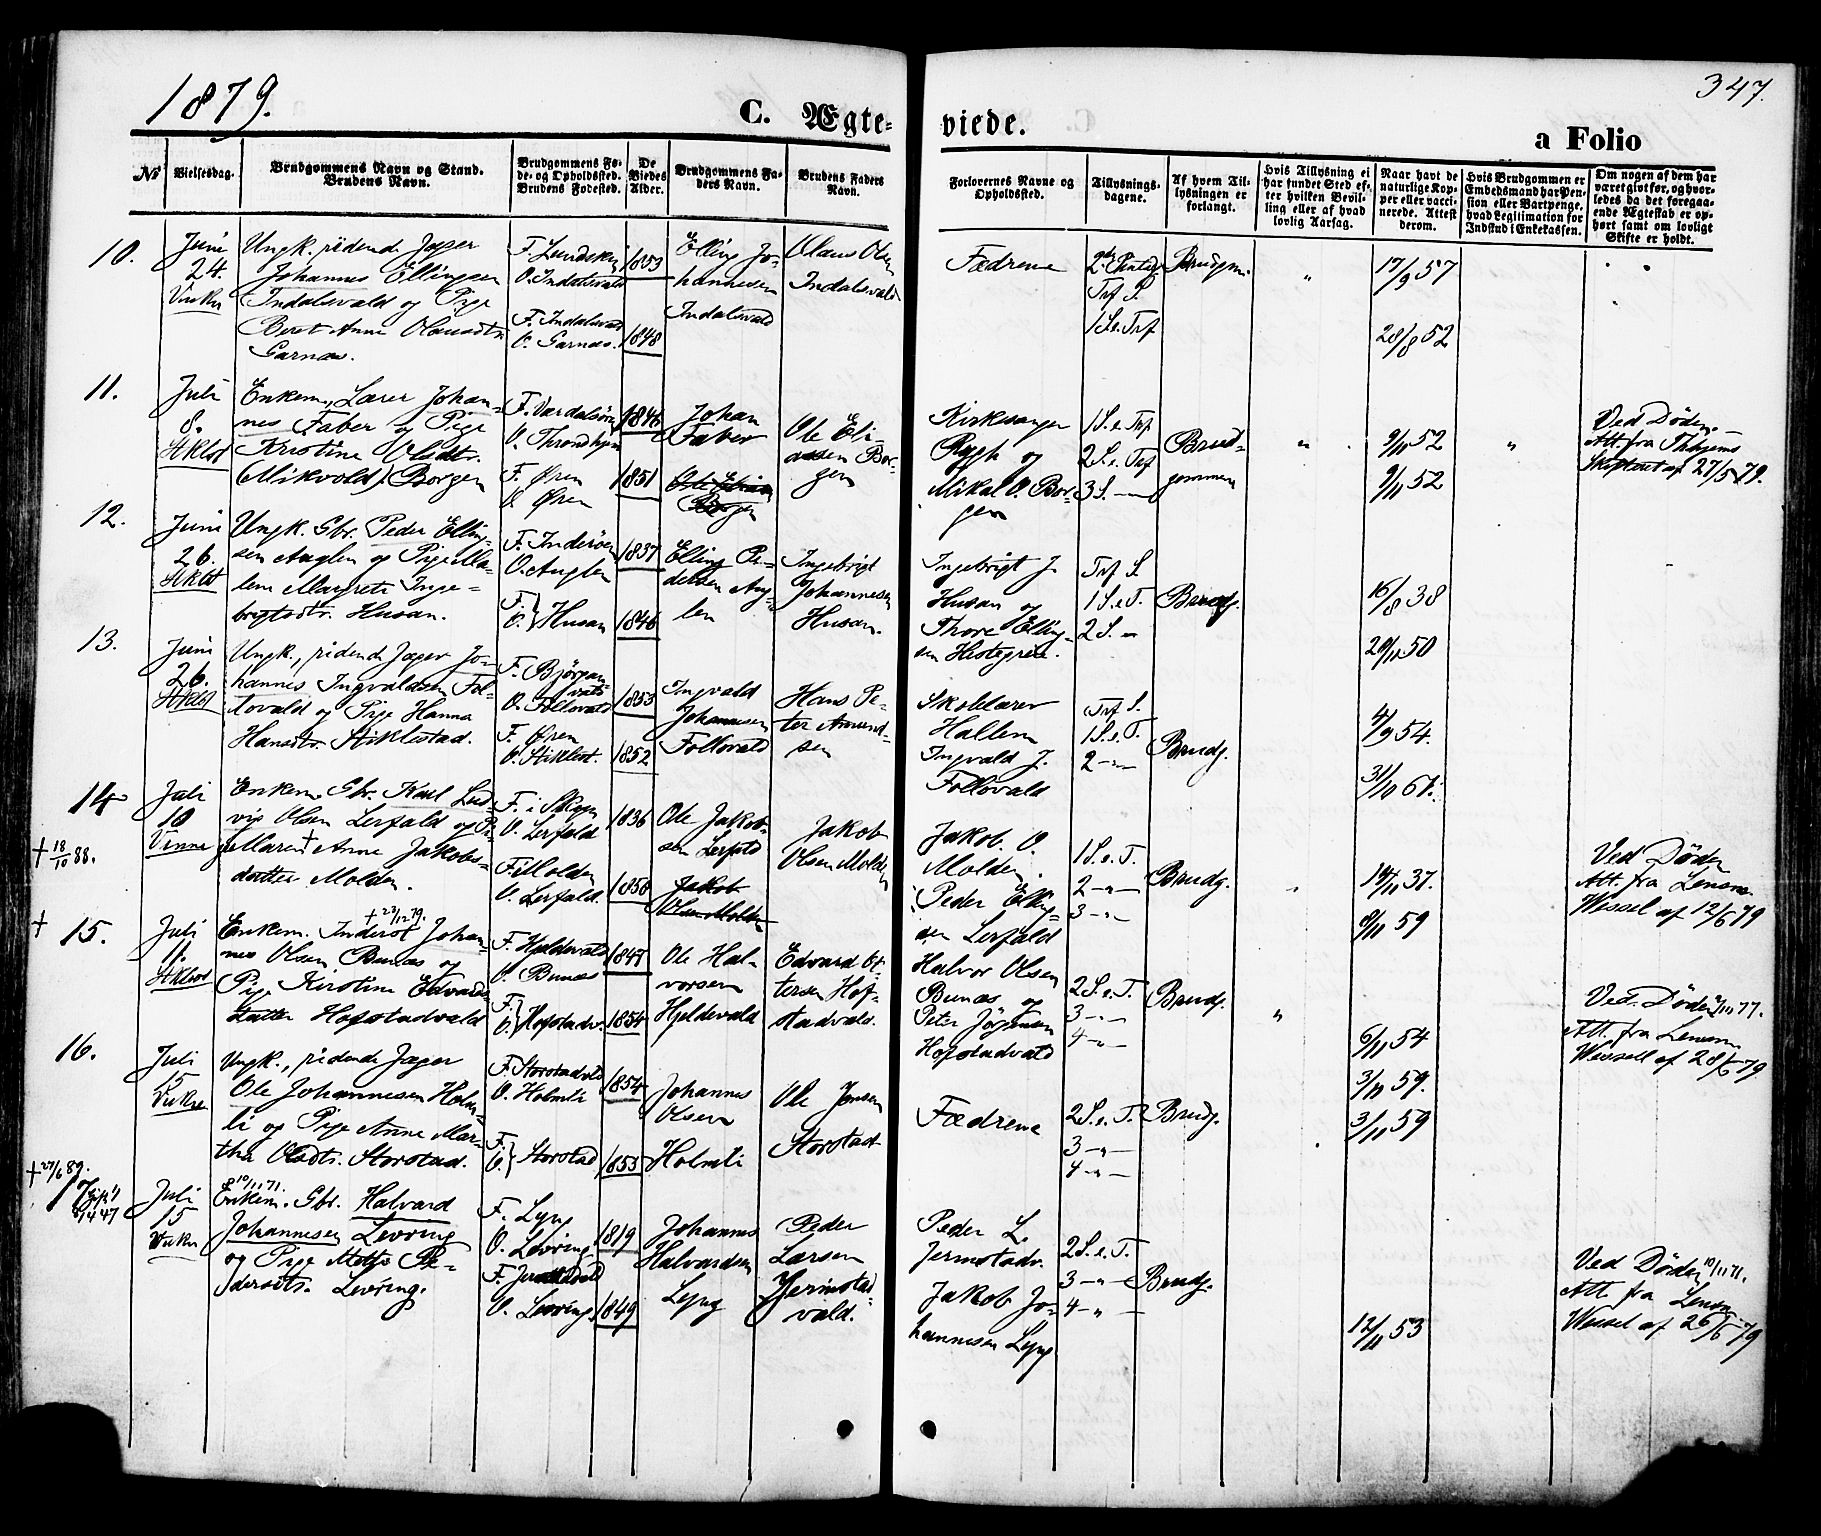 1879.
C. Ægte-
viede.
347.
a Folio
No
Vielsesdag.
Brudgommens Navn og Stand.
Brudens Navn.
Brudgommens Fø-
de- og Opholdssted.
Brudens Fødested.
De
Viedes
Alder.
Brudgommens Fa-
ders Navn.
Brudens Faders
Navn.
Forlovernes Navne og
Opholdssted.
Tillysnings-
dagene.
Af hvem Til-
lysningen er
forlangt.
Hvis Tillysning ei
har fundet Sted ef-
ter hvilken Bevil-
ling eller af hvad
lovlig Aarsag.
Naar havt de
naturlige Kop-
per eller vacci-
nerede. Attest
derom.
Hvis Brudgommen er
Embedsmand har Pen-
sion eller Vartpenge,
hvad Legitimation for
Indskud i Enkekassen.
Om nogen af dem har
været givt før, og hvor-
ledes da det foregaa-
ende Ægteskab er op-
hørt samt om lovligt
Skifte er holdt.
10.
Juni
24.
Vukn
Ungk. ridende Jæger
Johannes Ellingsen
Indalsvald og Pige
Beret Anne Olausdtr.
Garnæs.
F. Lundsken
O. Indalsvald
F. Indalsvald
O. Garnæs.
1853
1848
Elling Jo-
hannesen
Indalsvald
Olaus Olsen
Indalsvald
Fædrene
2den Pintsd.
Trf S.
1 S. e. Trf
Brudgm.
17/9 57
28/8 52
11.
Juli
8.
Stklst
Enkem., Lærer Johan-
nes Faber og Pige
Kristine Olsdtr.
(Mikvold) Borgen
F. Værdalsøren
O. Throndhjem
F. Øren
O. Øren
1846
1851
Johan
Faber
Ole Elias
Borgen
Ole Eli-
assen Bor-
gen
Kirkesanger
og
Mikal O. Bor-
gen
1 S. e. Trf
2 S. e. Trf
3 S. —
Brud-
gommen
9/10 52
9/11 52
Ved Døden.
Att. fra Thhjems
Skifteret af 27/5 79.
12.
Juni
26.
Stklst
Ungk. Gbr. Peder Elling-
sen Auglen og Pige Ma-
lene Margrete Inge-
brigtsdtr. Husan.
F. Inderøen
O. Auglen
F. } Husan
O.
1837
1846
Elling Pe-
dersen Aug-
len
Ingebrigt
Johannesen
Husan.
Ingebrigt J.
Husan og
Thore Elling-
sen Hestegrei.
Trf S.
1 S. e. T.
2 S. —
Brudg.
16/8 38
29/11 50
13.
Juni
26.
Stklst
Ungk., ridende Jæger Jo-
hannes Ingvaldsen Fol-
lovald og Pige Hanna
Hansdtr. Stiklestad.
F. Bjørgan-
vald
O. Follovald
F. Øren
O. Stiklest.
1853
1852
Ingvald
Johannesen
Follovald
Hans Pe-
ter Amund-
sen
Skolelærer
Hallem
Ingvald J.
Follovald
Trf S.
1 S. e. T.
2 —
Brudg.
4/9 54.
31/10 61.
14
+ 18/10 88.
Juli
10
Vinne
Enkem. Gbr. Karl Lud-
vig Olsen Lerfald og Pi-
ge Maren + Anne Jakobs-
datter Molden.
F. i Skogn
O. Lerfald
F. Molden
O. Lerfald.
1836
1858
Ole Jakob-
sen Lerfald
Jakob
Olsen Molden
Jakob
Olsen Molden
Jakob O.
Molden.
Peder Elling-
sen Lerfald
1 S. e. T.
2 —
3 —
Brudg.
19/11 37.
9/11 59
Ved Døden
Att. fra Lensm.
Wessel af 12/6 79
+
15.
Juli
11.
Stklst
+ 23/12 79.
Enkem. Inderst Johan-
nes Olsen Bunæs og
Pige Kirstine Edvards-
datter Hofstadvald
F. Hjeldevald
O. Bunæs
F. } Hofstadv.
O.
1847
1854
Ole Hal-
vorsen
Hjeldevald
Edvard Ot-
tersen Hof-
stadvald.
Halvor Olsen
Bunæs og
Peter Jørgensen
Hofstadvald
2 S. e. T.
3 —
4 —
Brudg.
6/11 54
3/11 59.
Ved Døden /11 77.
Att. fra Lensm
Wessell af 28/6 79.
16.
Juli
15
Vukn
Ungk., ridende Jæger
Ole Johannesen Holm-
li og Pige Anne Mar-
tha Olsdtr. Storstad.
F. Storstadvld
O. Holmli
F. } Storstad
O.
1854
1853
Johannes
Olsen
Holmli
Ole Jensen
Storstad
Fædrene
2 S. e. T.
3 —
4 —
Brudg.
3/11 59
+ 27/6 89.
17
Juli
15
Vukn
10/11 71.
Enkem. Gbr. Halvard
Johannesen Levring
og Pige Metje Pe-
dersdtr. Levring.
F. Lyng
O. Levring
F. Jermstadvald
O. Levring.
1819
1849
Johannes
Halvardsen
Lyng
Peder
Larsen
Jermstad-
vald.
Peder L.
Jermstadv.
Jakob Jo-
hannesen Lyng
2 S. e. T.
3 —
4 —
Brudg.
12/11 53
Ved Døden 10/11 71.
Att. fra Lensm
Wessel af 26/6 79